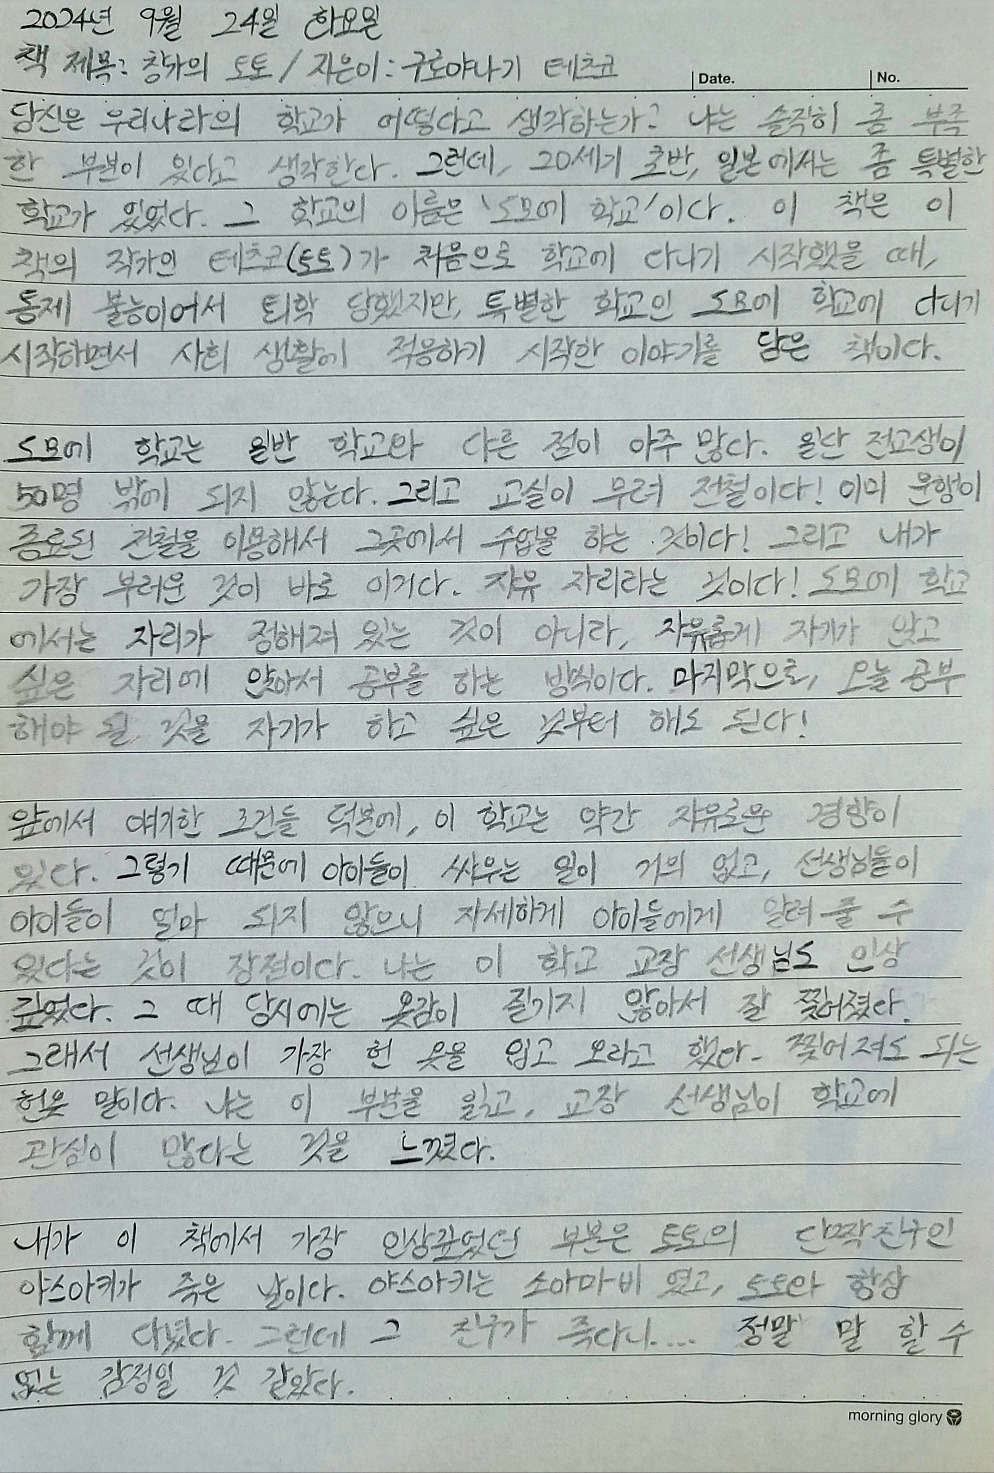 2024년 9월 24일 화요일
책 제목: 창가의 토토 / 지은이 : 구로야나기 테츠코
Date. No.
당신은 우리나라의 학교가 어떻다고 생각하는가? 나는 솔직히 좀 부족
한 부분이 있다고 생각한다. 그런데, 20세기 초반, 일본에서는 좀 특별한
학교가 있었다. 그 학교의 이름은 '도모에 학교'이다. 이 책은 이
책의 작가인 테츠코(토토)가 처음으로 학교에 다니기 시작했을 때,
통제 불능이어서 퇴학 당했지만, 특별한 학교인 도모에 학교에 다니기
시작하면서 사회 생활에 적응하기 시작한 이야기를 담은 책이다.
도모에 학교는 일반 학교와 다른 점이 아주 많다. 일단 전교생이
50명 밖에 되지 않는다. 그리고 교실이 무려 전철이다! 이미 운행이
종료된 전철을 이용해서 그곳에서 수업을 하는 것이다! 그리고 내가
가장 부러운 것이 바로 이거다. 자유 자리라는 것이다! 도모에 학교
에서는 자리가 정해져 있는 것이 아니라, 자유롭게 자기가 앉고
싶은 자리에 앉아서 공부를 하는 방식이다. 마지막으로, 오늘 공부
해야 될 것을 자기가 하고 싶은 것부터 해도 된다!
앞에서 얘기한 조건들 덕분에, 이 학교는 약간 자유로운 경향이
있다. 그렇기 때문에 아이들이 싸우는 일이 거의 없고, 선생님들이
아이들이 얼마 되지 않으니 자세하게 아이들에게 알려 줄 수
있다는 것이 장점이다. 나는 이 학교 교장 선생님도 인상
깊었다. 그 때 당시에는 옷감이 질기지 않아서 잘 찢어졌다.
그래서 선생님이 가장 헌 옷을 입고 오라고 했다. 찢어져도 되는
헌옷 말이다. 나는 이 부분을 읽고, 교장 선생님이 학교에
관심이 많다는 것을 느꼈다.
내가 이 책에서 가장 인상깊었던 부분은 토토의 단짝친구인
야스아키가 죽은 날이다. 야스아키는 소아마비 였고, 토토와 항상
함께 다녔다. 그런데 그 친구가 죽다니.... 정말 말 할 수
없는 감정일 것 같았다.
morning glory